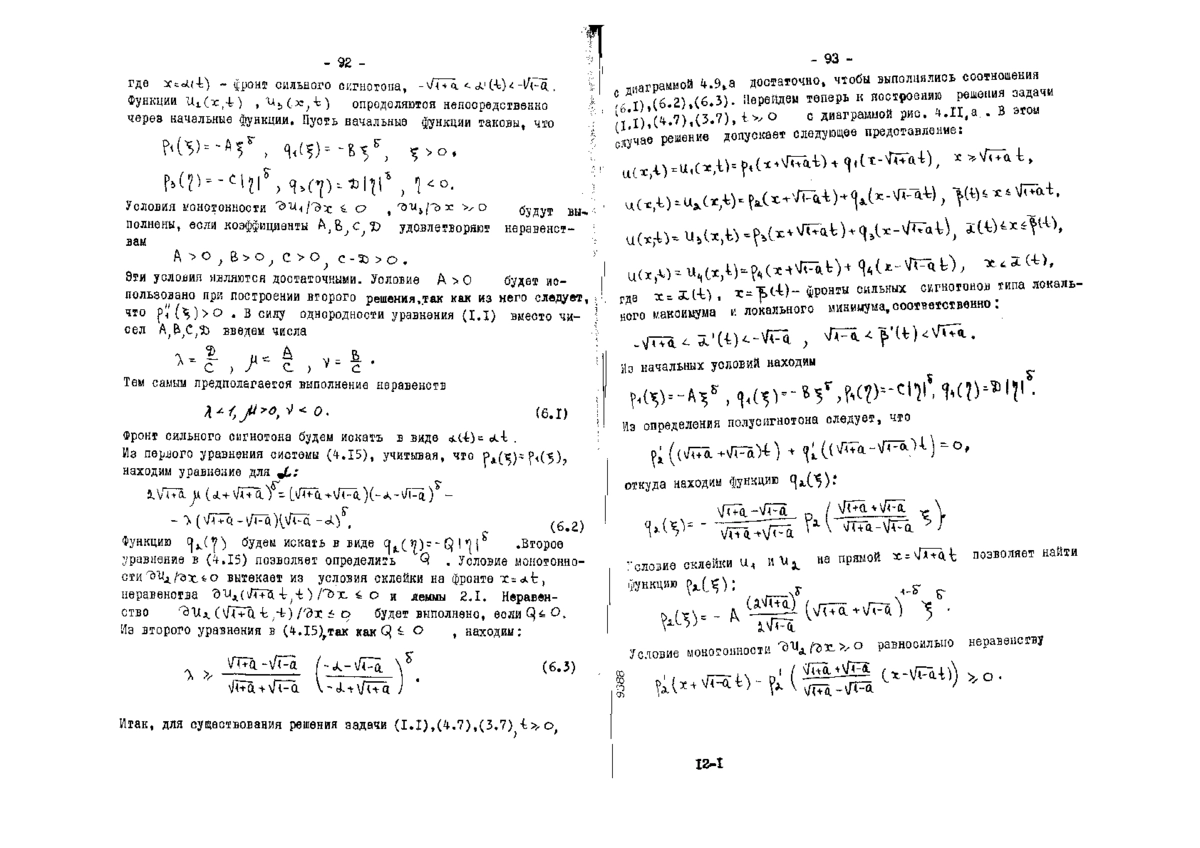 - 92 -
где x=α(t) - фронт сильного сигнотона, -√1+a < α'(t) < -√1-a.
Функции u₁(x,t) , u₃(x,t) определяются непосредственно
через начальные функции. Пусть начальные функции таковы, что
p₁(ξ)=-Aξ^δ , q₁(ξ)=-Bξ^δ, ξ>0,
p₃(η)=-C|η|^δ, q₃(η)=D|η|^δ, η<0.
Условия монотонности ∂u₁/∂x ≤ 0 , ∂u₃/∂x ≥ 0 будут вы-
полнены, если коэффициенты A,B,C,D удовлетворяют неравенст-
вам
A>0, B>0, C>0, C-D>0.
Эти условия являются достаточными. Условие A>0 будет ис-
пользовано при построении второго решения,так как из него следует,
что p₁''(ξ)>0. В силу однородности уравнения (I.I) вместо чи-
сел A,B,C,D введем числа
λ = D/C , μ = A/C , ν = B/C .
Тем самым предполагается выполнение неравенств
λ<1, μ>0, ν<0. (6.I)
Фронт сильного сигнотона будем искать в виде α(t)=αt.
Из первого уравнения системы (4.I5), учитывая, что p₂(ξ)=p₁(ξ),
находим уравнение для α:
2√1+a μ(α+√1+a)^δ=(√1+a+√1-a)(-α-√1-a)^δ -
- λ(√1+a-√1-a)(√1-a-α)^δ. (6.2)
Функцию q₂(η) будем искать в виде q₂(η)=-Q|η|^δ .Второе
уравнение в (4.I5) позволяет определить Q . Условие монотонно-
сти ∂u₂/∂x≤0 вытекает из условия склейки на фронте x=αt,
неравенства ∂u₂(√1+a t,t)/∂x ≤ 0 и леммы 2.I. Неравен-
ство ∂u₂(√1+a t,t)/∂x ≤ 0 будет выполнено, если Q≤0.
Из второго уравнения в (4.I5),так как Q ≤ 0 , находим:
λ ≥ (√1+a-√1-a)/(√1+a+√1-a) ((-α-√1-a)/(-α+√1+a))^δ. (6.3)
Итак, для существования решения задачи (I.I),(4.7),(3.7), t≥0,
- 93 -
с диаграммой 4.9,а достаточно, чтобы выполнялись соотношения
(6.I),(6.2),(6.3). Перейдем теперь к построению решения задачи
(I.I),(4.7),(3.7), t≥0 с диаграммой рис. 4.II,а . В этом
случае решение допускает следующее представление:
u(x,t)=u₁(x,t)=p₁(x+√1+a t)+q₁(x-√1+a t), x≥√1+a t,
u(x,t)=u₂(x,t)=p₂(x+√1-a t)+q₂(x-√1-a t), β̄(t)≤x≤√1+a t,
u(x,t)=u₃(x,t)=p₃(x+√1+a t)+q₃(x-√1+a t), ᾱ(t)≤x≤β̄(t),
u(x,t)=u₄(x,t)=p₄(x+√1-a t)+q₄(x-√1-a t), x≤ᾱ(t),
где x=ᾱ(t), x=β̄(t)- фронты сильных сигнотонов типа локаль-
ного максимума и локального минимума,соответственно:
-√1+a < ᾱ'(t)<-√1-a , √1-a < β̄'(t)<√1+a.
Из начальных условий находим
p₁(ξ)=-Aξ^δ, q₁(ξ)=-Bξ^δ, p₄(η)=-C|η|^δ, q₄(η)=D|η|^δ.
Из определения полусигнотона следует, что
p₂'((√1+a+√1-a)t) + q₂'((√1+a-√1-a)t)=0,
откуда находим функцию q₂(ξ):
q₂(ξ)= - (√1+a-√1-a)/(√1+a+√1-a) p₂((√1+a+√1-a)/(√1+a-√1-a) ξ).
Условие склейки u₁ и u₂ на прямой x=√1+a t позволяет найти
функцию p₂(ξ):
p₂(ξ)= - A (2√1+a)^δ/(2√1-a) (√1+a+√1-a)^(1-δ) ξ^δ.
Условие монотонности ∂u₂/∂x≥0 равносильно неравенству
p₂'(x+√1-a t)-p₂'((√1+a+√1-a)/(√1+a-√1-a) (x-√1-a t)) ≥0.
9388
I2-I